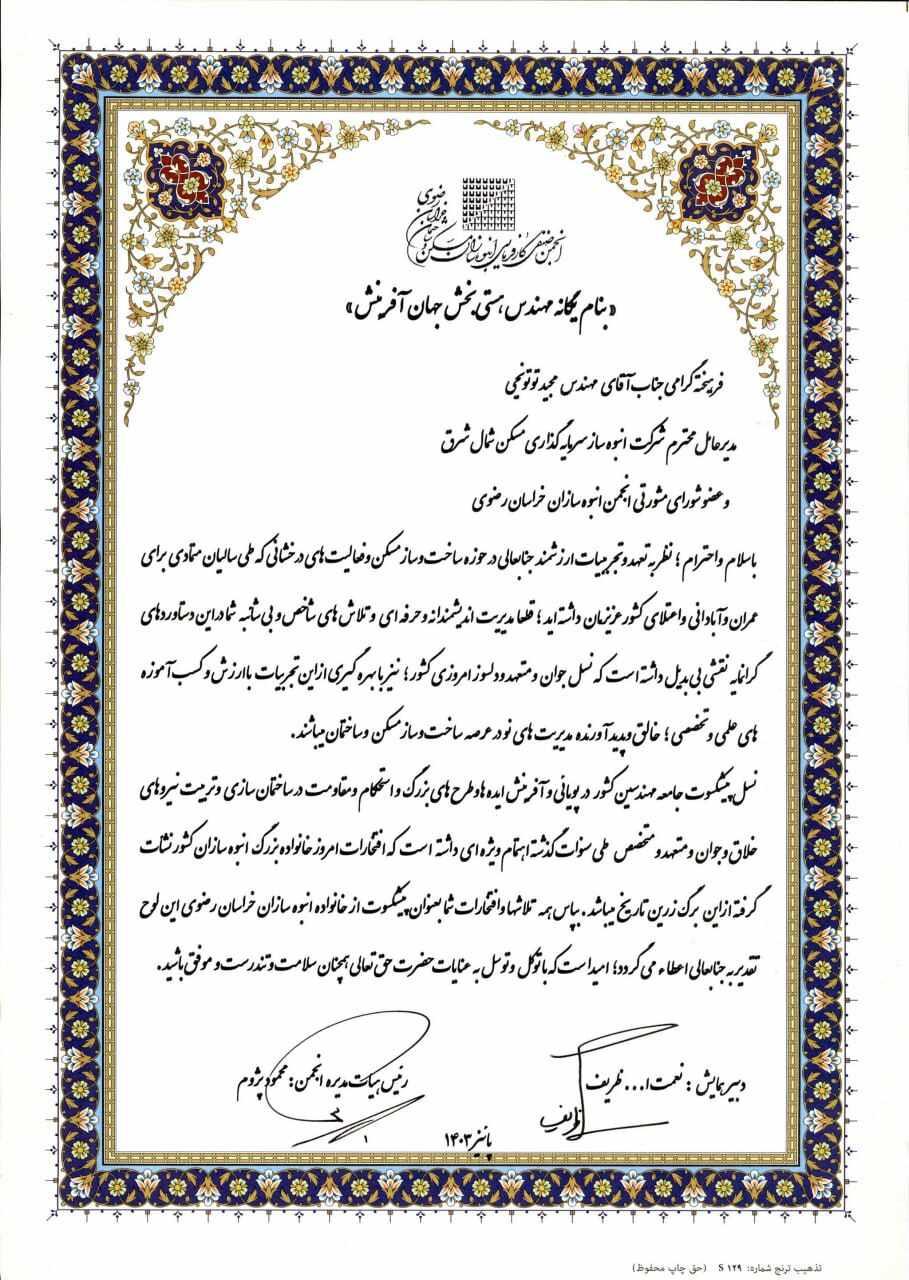 انجمن صنفی کارفرمایی انبوه سازان مسکن و ساختمان خراسان رضوی
«بنام یگانه مهندس هستی بخش جهان آفرینش»
فرهیخته گرامی جناب آقای مهندس مجید توتونچی
مدیرعامل محترم شرکت انبوه ساز سرمایه گذاری مسکن شمال شرق
و عضو شورای مشورتی انجمن انبوه سازان خراسان رضوی
باسلام واحترام ؛ نظر به تعهد و تجربیات ارزشمند جنابعالی در حوزه ساخت و ساز مسکن و فعالیت های درخشانی که طی سالیان متمادی برای
عمران و آبادانی واعتلای کشور عزیزمان داشته اید ؛ قطعا مدیریت اندیشمندانه و حرفه ای و تلاش های شاخص و بی شائبه شما در این دستاوردهای
گرانمایه نقشی بی بدیل داشته است که نسل جوان و متعهد و دلسوز امروزی کشور ؛ نیز با بهره گیری از این تجربیات باارزش و کسب آموزه
های علمی و تخصصی ؛ خالق و پدید آورنده مدیریت های نو در عرصه ساخت و ساز مسکن و ساختمان میباشند.
نسل پیشکسوت جامعه مهندسین کشور در پویائی و آفرینش ایده ها و طرح های بزرگ و استحکام و مقاومت در ساختمان سازی و تربیت نیروهای
خلاق و جوان و متعهد و متخصص طی سنوات گذشته اهتمام ویژه ای داشته است که افتخارات امروز خانواده بزرگ انبوه سازان کشور نشات
گرفته از این برگ زرین تاریخ میباشد. بپاس همه تلاشها و افتخارات شما بعنوان پیشکسوت از خانواده انبوه سازان خراسان رضوی این لوح
تقدیر به جنابعالی اعطاء می گردد؛ امید است که با توکل و توسل به عنایات حضرت حق تعالی همچنان سلامت و تندرست و موفق باشید.
دبیر همایش : نعمت ا... ظریف
رئیس هیات مدیره انجمن : محمود پژوم
ظریف
پائیز ۱۴۰۳
تذهیب ترنج شماره: S ۱۲۹ (حق چاپ محفوظ)